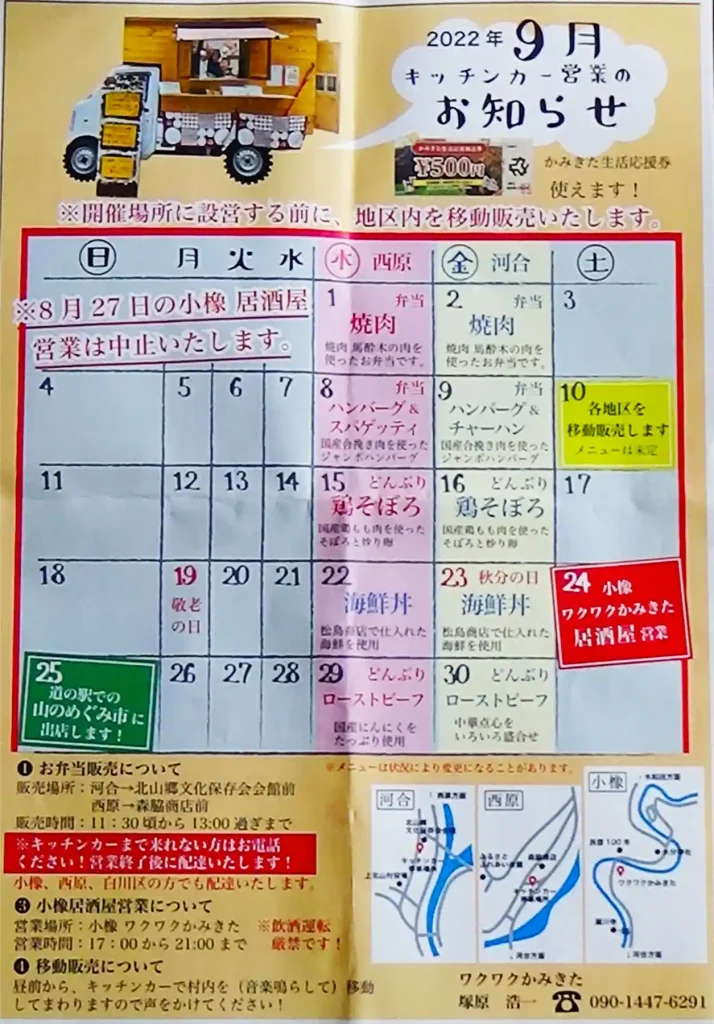 2022年 9月
キッチンカー営業の
お知らせ
かみきた生活応援商品券
¥500円
かみきた生活応援券
使えます！
※開催場所に設営する前に、地区内を移動販売いたします。
日 月 火 水 木 西原 金 河合 土
※8月27日の小橡 居酒屋
営業は中止いたします。
1 弁当
焼肉
焼肉 馬酔木の肉を
使ったお弁当です。
2 弁当
焼肉
焼肉 馬酔木の肉を
使ったお弁当です。
3
4 5 6 7
8 弁当
ハンバーグ&
スパゲッティ
国産合挽き肉を使った
ジャンボハンバーグ
9 弁当
ハンバーグ&
チャーハン
国産合挽き肉を使った
ジャンボハンバーグ
10 各地区を
移動販売します
メニューは未定
11 12 13 14
15 どんぶり
鶏そぼろ
国産鶏もも肉を使った
そぼろと炒り卵
16 どんぶり
鶏そぼろ
国産鶏もも肉を使った
そぼろと炒り卵
17
18
19
敬老
の日
20 21
22
海鮮丼
松島商店で仕入れた
海鮮を使用
23 秋分の日
海鮮丼
松島商店で仕入れた
海鮮を使用
24 小橡
ワクワクかみきた
居酒屋 営業
25
道の駅での
山のめぐみ市に
出店します！
26 27 28
29 どんぶり
ローストビーフ
国産にんにくを
たっぷり使用
30 どんぶり
ローストビーフ
中華点心を
いろいろ盛合せ
❶ お弁当販売について
※メニューは状況により変更になることがあります。
販売場所：河合→北山郷文化保存会会館前
西原→森脇商店前
販売時間：11：30頃から13:00過ぎまで
※キッチンカーまで来れない方はお電話
ください！営業終了後に配達いたします！
小橡、西原、白川区の方でも配達いたします。
❸ 小橡居酒屋営業について
営業場所：小橡 ワクワクかみきた ※飲酒運転
営業時間：17：00から21:00まで 厳禁です！
❶ 移動販売について
昼前から、キッチンカーで村内を（音楽鳴らして）移動
してまわりますので声をかけてください！
河合
西原方面
北山郷
文化保存会館
キッチンカー
停車場所
上北山村役場
西原
ふるさと
ふれあい会館
森脇商店
キッチンカー
停車場所
河合方面
小橡
ワクワクかみきた
河合方面
ワクワクかみきた
塚原 浩一 ☎ 090-1447-6291